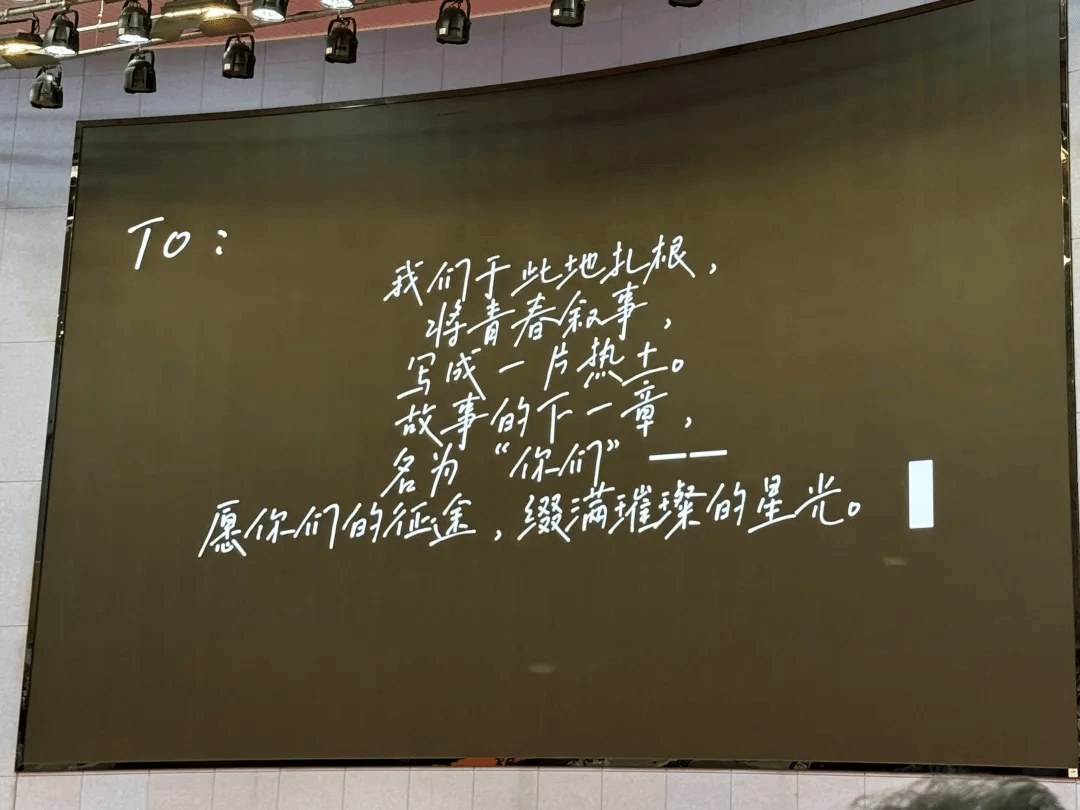 To：
我们于此地扎根，
将青春叙事，
写成一片热土。
故事的下一章，
名为“你们”——
愿你们的征途，缀满璀璨的星光。